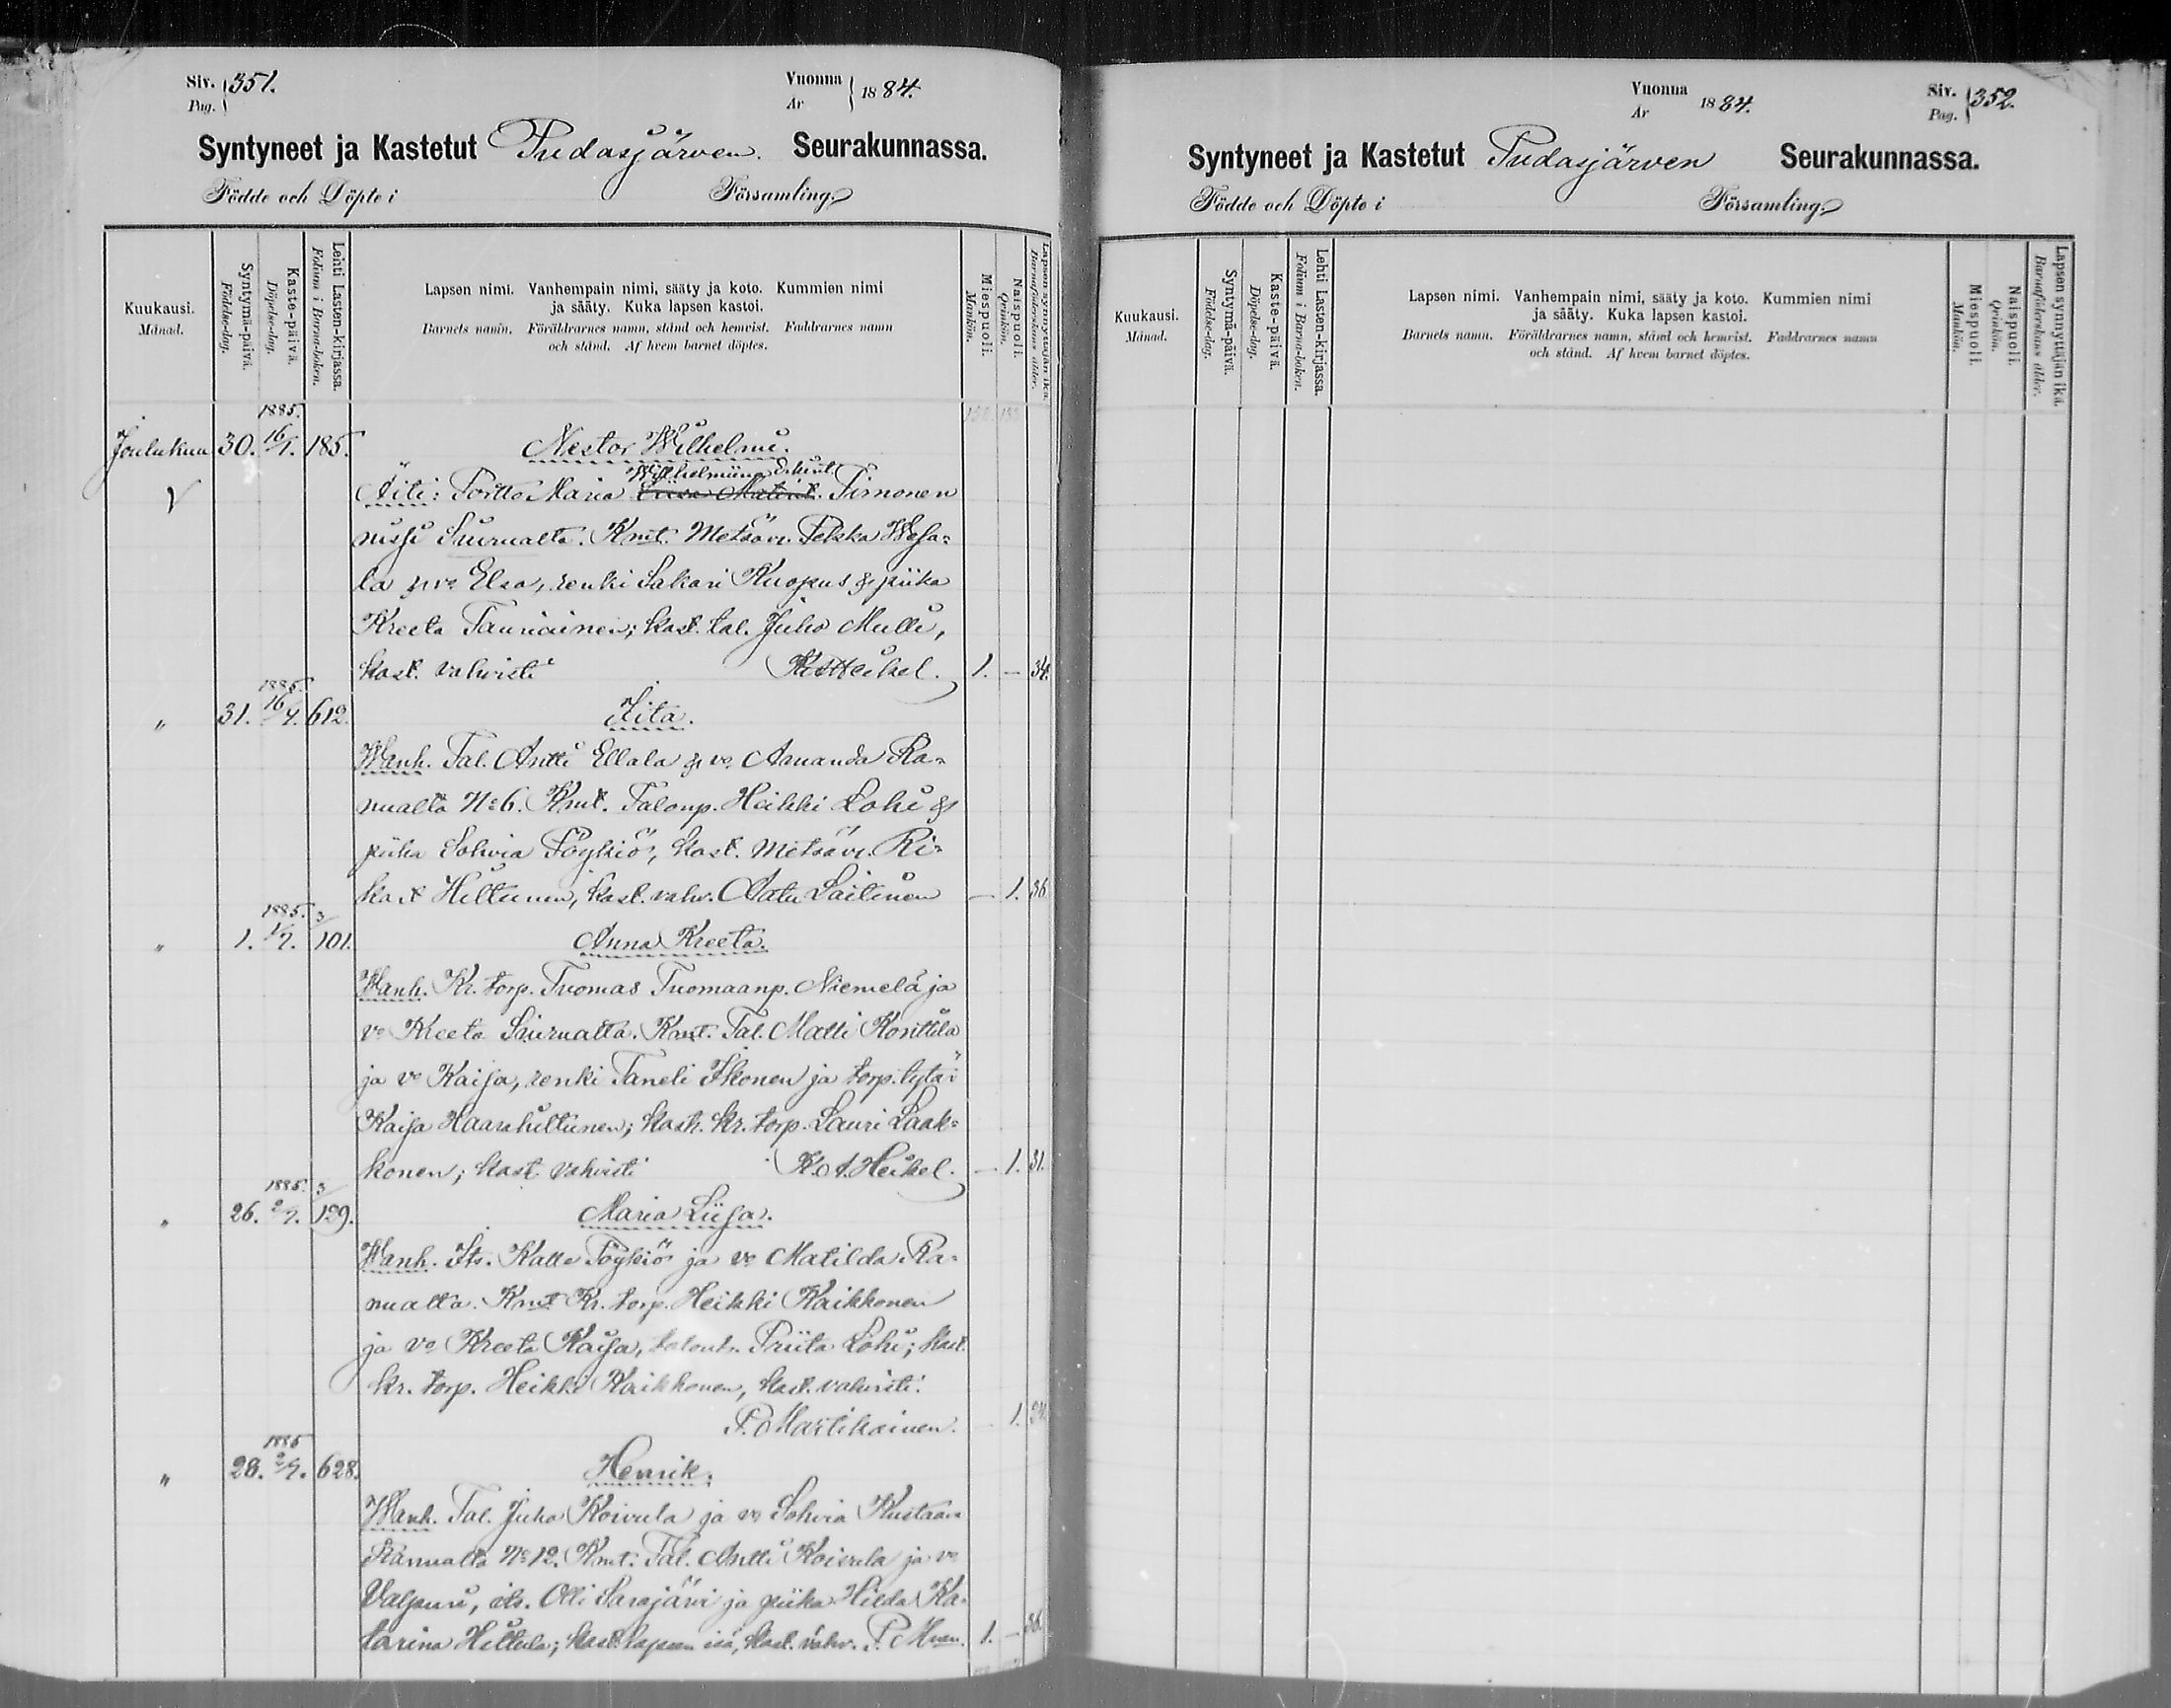 Siv. Pag. 351.
Vuonna År 1884.
Syntyneet ja Kastetut Pudasjärven. Seurakunnassa.
Födde och Döpte i Församling
Kuukausi. Månad.
Syntymä-päivä. Födelse-dag.
Kaste-päivä. Döpelse-dag.
Lehti Lasten-kirjassa. Folium i Barna-boken.
Lapsen nimi. Vanhempain nimi, sääty ja koto. Kummien nimi
ja sääty. Kuka lapsen kastoi.
Barnets namn. Föräldrarnes namn, stånd och hemvist. Faddrarnes namn
och stånd. Af hvem barnet döptes.
Miespuoli. Mankön.
Naispuoli. Qvinkön.
Lapsen synnyttäjän ikä. Barnaföderskans ålder.
1885.
Joulukuu 30. 16/1. 185. Nestor Wilhelmi.
Wilhelmiina
V Äiti: Portto Maria Timonen
Siurualta. Kmt. Metsäv. Pekka Wesa=
la ja vo Elsa, renki Sakari Kuopus & piika
Kreeta Tauriainen; kast. tal. Juho Mulli,
kast. vahvisti Heikel. 1. — 34.
1885.
" 31. 16/1. 612. Iita.
Wanh. Tal. Antti Ellala & vo Amanda Ra=
nualta No 6. Kmt. Talonp. Heikki Lohi &
piika Sohvia Pöykiö, kast. Metsäv. Ri=
kart Hiltunen, kast. vahv. Aatu Laitinen — 1. 36
1885. 3/
" 1. 101. Anna Kreeta.
Wanh. Kr. torp. Tuomas Tuomaanp. Niemelä ja
vo Kreeta Siurualta. Kmt. Tal. Matti Konttila
ja vo Kaisa, renki Taneli Ikonen ja torp. tytär
Kaisa Haarahiltunen; kast. kr. torp. Lauri Laak=
konen; kast. vahvisti K. A. Heikel. — 1. 31.
1885. 3/
" 26. 2/2. 129. Maria Liisa.
Wanh. Its. Kalle Pöykiö ja vo Matilda Ra=
nualta. Kmt Kr. torp. Heikki Kaikkonen
ja vo Kreeta Kaisa, talont. Priita Lohi; kast.
kr. torp. Heikki Kaikkonen, kast. vahvisti:
P. Martikainen. — 1.
1885
" 28. 2/2. 628. Henrik.
Wanh. Tal. Juho Koivula ja vo Sohvia Kustaan
Ranualta No 12. Kmt: Tal. Antti Koivula ja vo
Valpuri, its. Olli Sarajärvi ja piika Hilda Ka=
tarina Hiltula; kast. lapsen isä, kast. vahv. P. Mnen. 1. — 36.
Vuonna År 1884.
Siv. Pag. 352.
Syntyneet ja Kastetut Pudasjärven Seurakunnassa.
Födde och Döpte i Församling
Kuukausi. Månad.
Syntymä-päivä. Födelse-dag.
Kaste-päivä. Döpelse-dag.
Lehti Lasten-kirjassa. Folium i Barna-boken.
Lapsen nimi. Vanhempain nimi, sääty ja koto. Kummien nimi
ja sääty. Kuka lapsen kastoi.
Barnets namn. Föräldrarnes namn, stånd och hemvist. Faddrarnes namn
och stånd. Af hvem barnet döptes.
Miespuoli. Mankön.
Naispuoli. Qvinkön.
Lapsen synnyttäjän ikä. Barnaföderskans ålder.